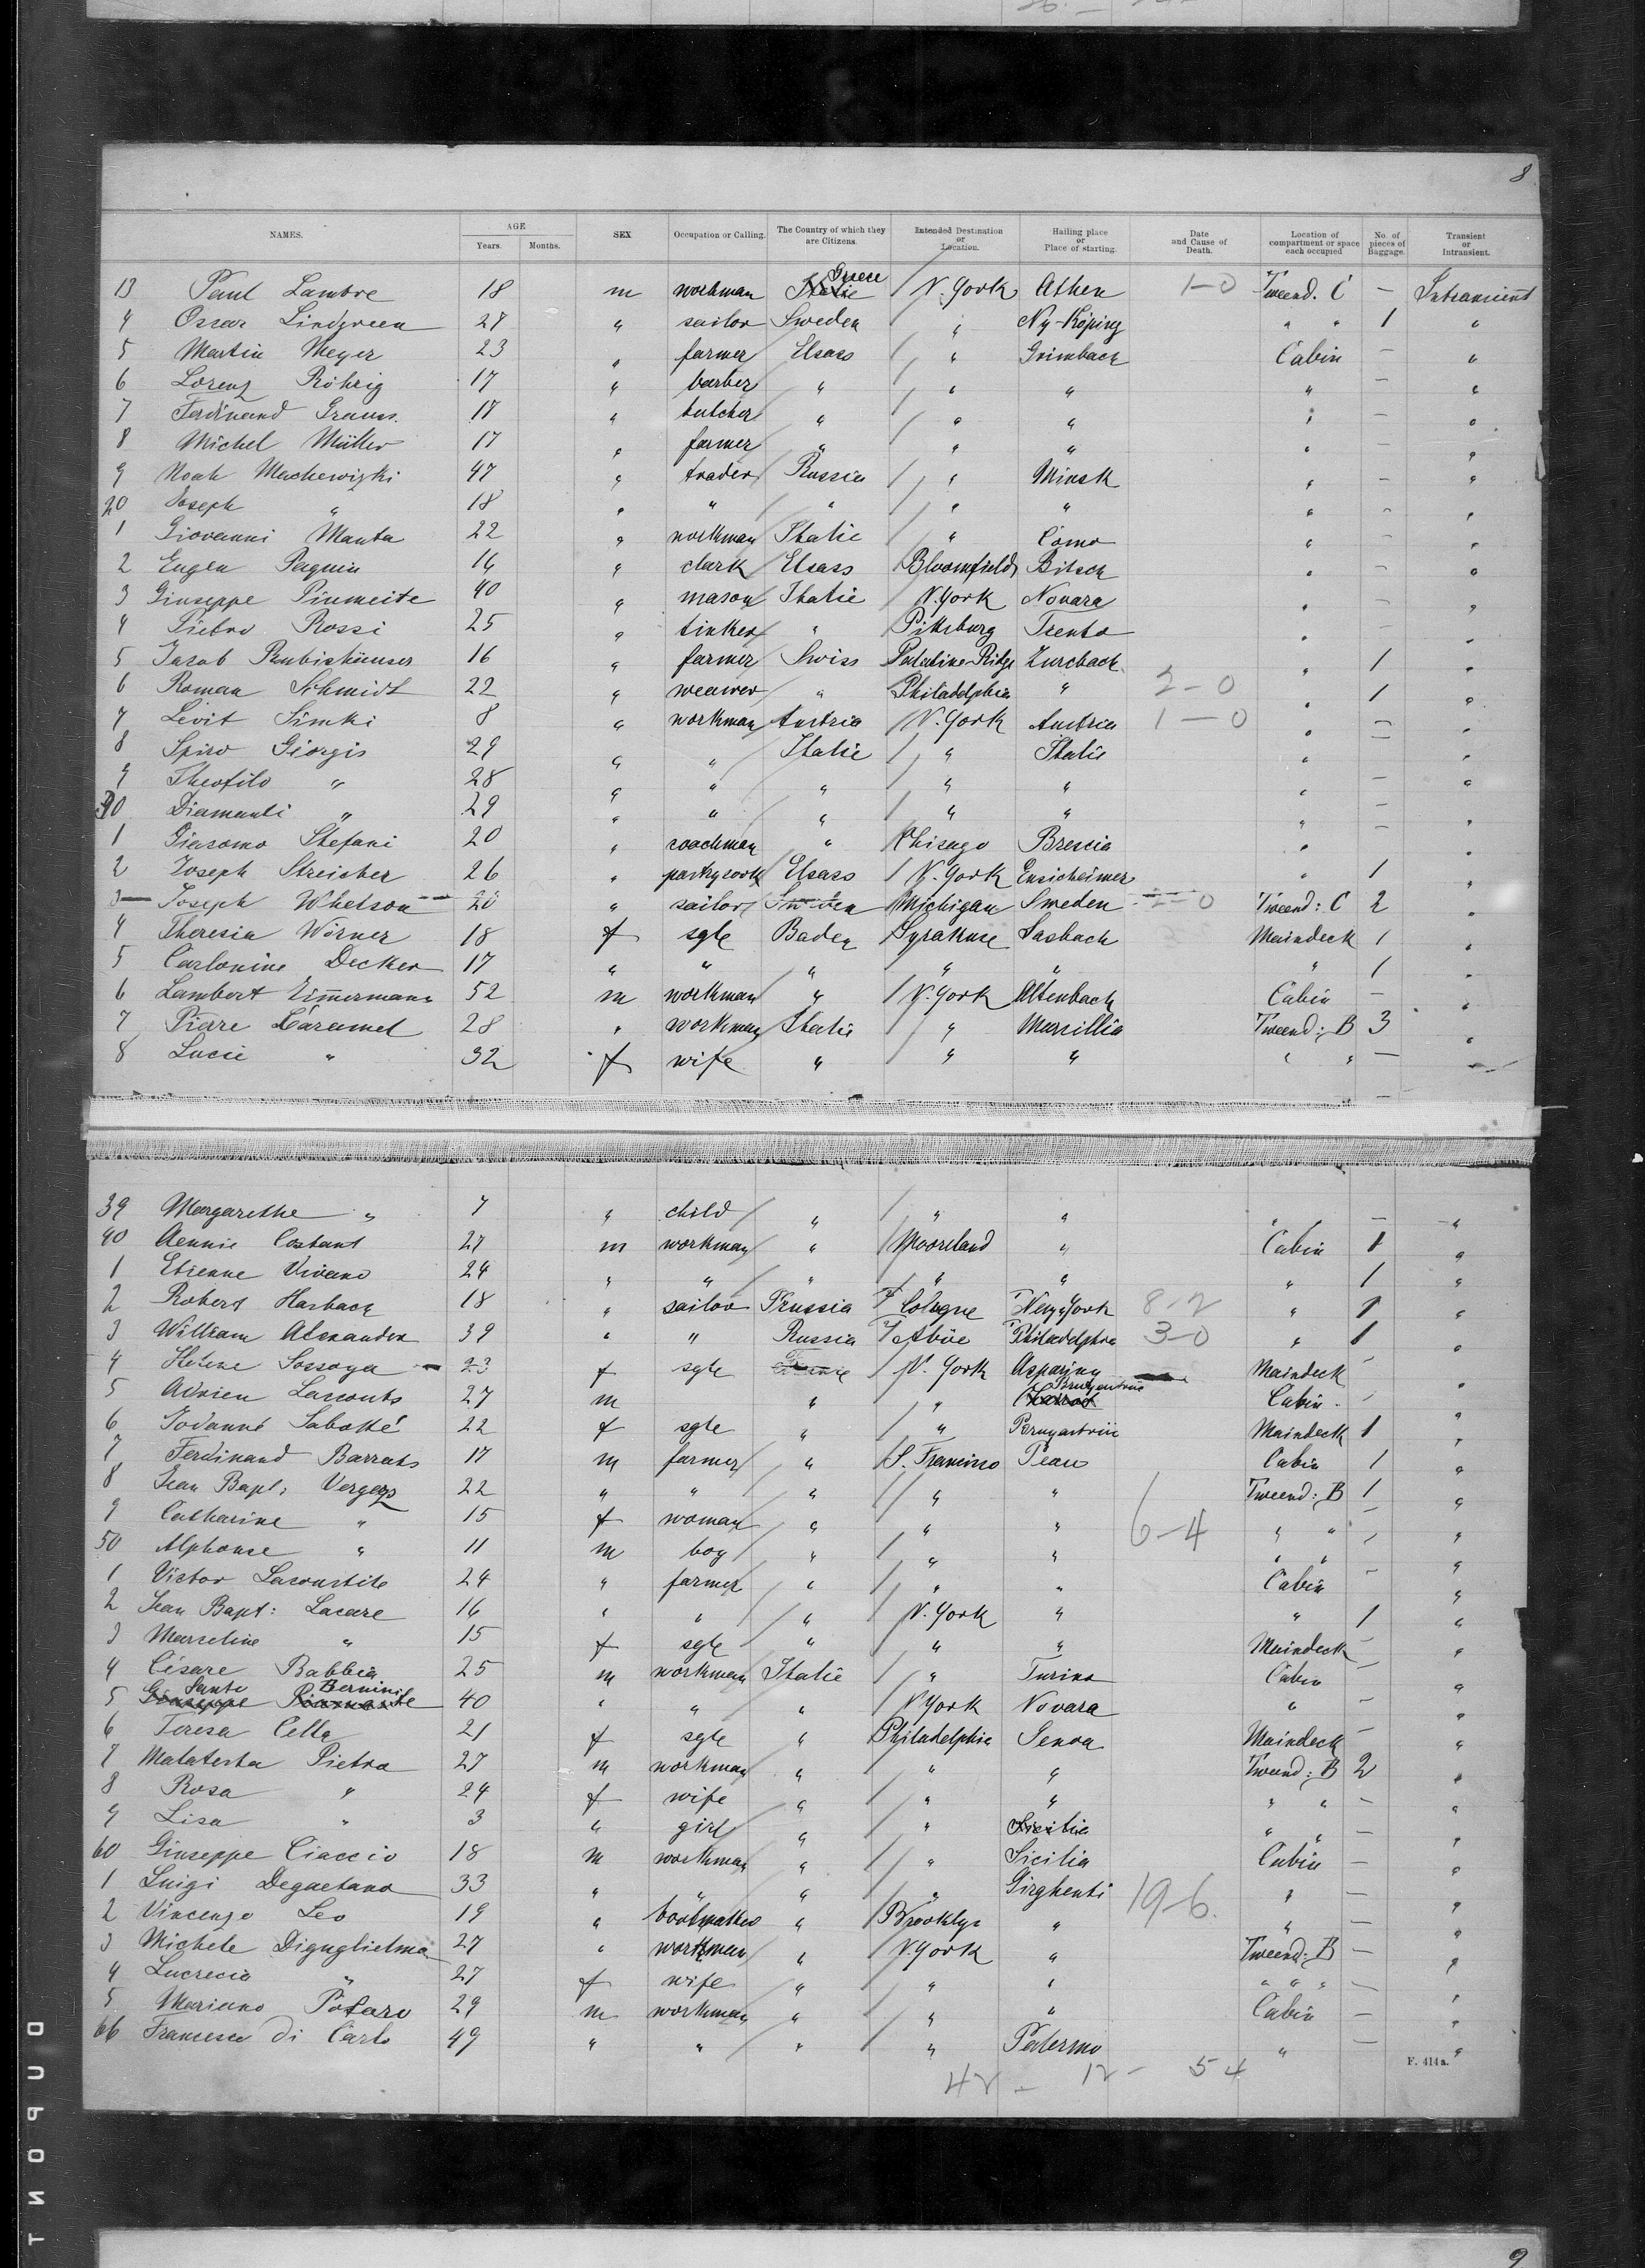 8
NAMES. AGE Years. Months. SEX Occupation or Calling. The Country of which they are Citizens. Intended Destination or Location. Hailing place or Place of starting. Date and Cause of Death. Location of compartment or space each occupied No. of pieces of Baggage. Transient or Intransient.
13 Paul Lambre 18 m workman Italie Greece N. York Athen 1-0 Tweend. C — Intransient
4 Oscar Lindgreen 27 " sailor Sweden " Ny-Köping " " 1 "
5 Martin Meyer 23 " farmer Elsass " Grimbach Cabin — "
6 Lorenz Röhrig 17 " barber " " " " — "
7 Ferdinand Grauss. 17 " butcher " " " " — "
8 Michel Müller 17 " farmer " " " " — "
9 Noah Machewizki 47 " trader Russia " Minsk " — "
20 Joseph " 18 " " " " " " — "
1 Giovanni Manta 22 " workman Italie " Como " — "
2 Eugen Paquin 16 " clark Elsass Bloomfield Bitsch " — "
3 Giuseppe Piumeite 40 " mason Italie N. York Novara " — "
4 Rossi 25 " tinker " Pittsburg Trento " — "
5 Jacob 16 " farmer Swiss Palatine-Ridge Zurcbach " 1 "
6 Roman Schmidt 22 " weawer " Philadelphia " 2-0 " 1 "
7 Levit Simki 8 " workman Austria N. York Austria 1-0 " — "
8 Spiro Giorgis 29 " " Italie " Italie " — "
9 Theofilo " 28 " " " " " " — "
30 Diamanti " 29 " " " " " " — "
1 Giacomo Stefani 20 " coachman " Chicago Brescia " — "
2 Joseph Streicher 26 " pastrycook Elsass N. York Ensisheimer " 1 "
3 Joseph Whetson 20 " sailor Sweden Michigan Sweden 2-0 Tweend: C 2 "
4 Theresia Wörner 18 f sgle Baden Syrakuse Sasbach Maindeck 1 "
5 Carlonine Decker 17 " " " " " " 1 "
6 Lambert Zimmermann 52 m workman " N. York Altenbach Cabin — "
7 Piare Caramel 28 " workman Italie " Marsillia Tweend: B 3 "
8 Lucie " 32 f wife " " " " " — "
39 Margarethe " 7 " child " " " " " — "
40 Aennie Costant 27 m workman " Mooreland " Cabin 1 "
1 Etienne Vivano 24 " " " " " " 1 "
2 Robert Harbach 18 " sailor Prussia Cologne New York 8-2 " 1 "
3 William Alexander 39 " " Russia Aboe Philadelphia 3-0 " 1 "
4 Helene Sossoya 23 f sgle N. York Asparing Maindeck — "
5 Adrien Lassouts 27 m " " Cabin — "
6 Sabatté 22 f sgle " " Maindeck 1 "
7 Ferdinand Barrats 17 m farmer " S. Francisco Peau Cabin 1 "
8 Jean Bapt: Vergez 22 " " " " " Tweend: B 1 "
9 Catharine " 15 f woman " " " 6-4 " " — "
50 Alphonse " 11 m boy " " " " " — "
1 Victor Lacoustite 24 " farmer " " " Cabin — "
2 Jean Bapt: Lacare 16 " " " N. York " " 1 "
3 Marceline " 15 f sgle " " " Maindeck — "
4 Césare Babbia 25 m workman Italie " Turino Cabin — "
5 Giuseppe Piumarite Santo Bernini 40 " " " N York Novara " — "
6 Teresa Cella 21 f sgle " Philadelphia Genoa Maindeck — "
7 Malatesta Pietro 27 m workman " " " Tweend: B 2 "
8 Rosa " 24 f wife " " " " " — "
9 Lisa " 3 " girl " " Sicilia " " — "
60 Giuseppe Ciaccio 18 m workman " " Sicilia Cabin — "
1 Luigi Degaetano 33 " " " " Girghenti 19-6. " — "
2 Vincenzo Leo 19 " " Brooklyn " " — "
3 Michele Diguglielmo 27 " workman " N. York " Tweend: B — "
4 Lucrecia " 27 f wife " " " " " " — "
5 Mariano Potaro 29 m workman " " " Cabin — "
66 Francesco di Carlo 49 " " " " Palermo " — "
42 - 12 - 54
F. 414a.
DUPONT
9